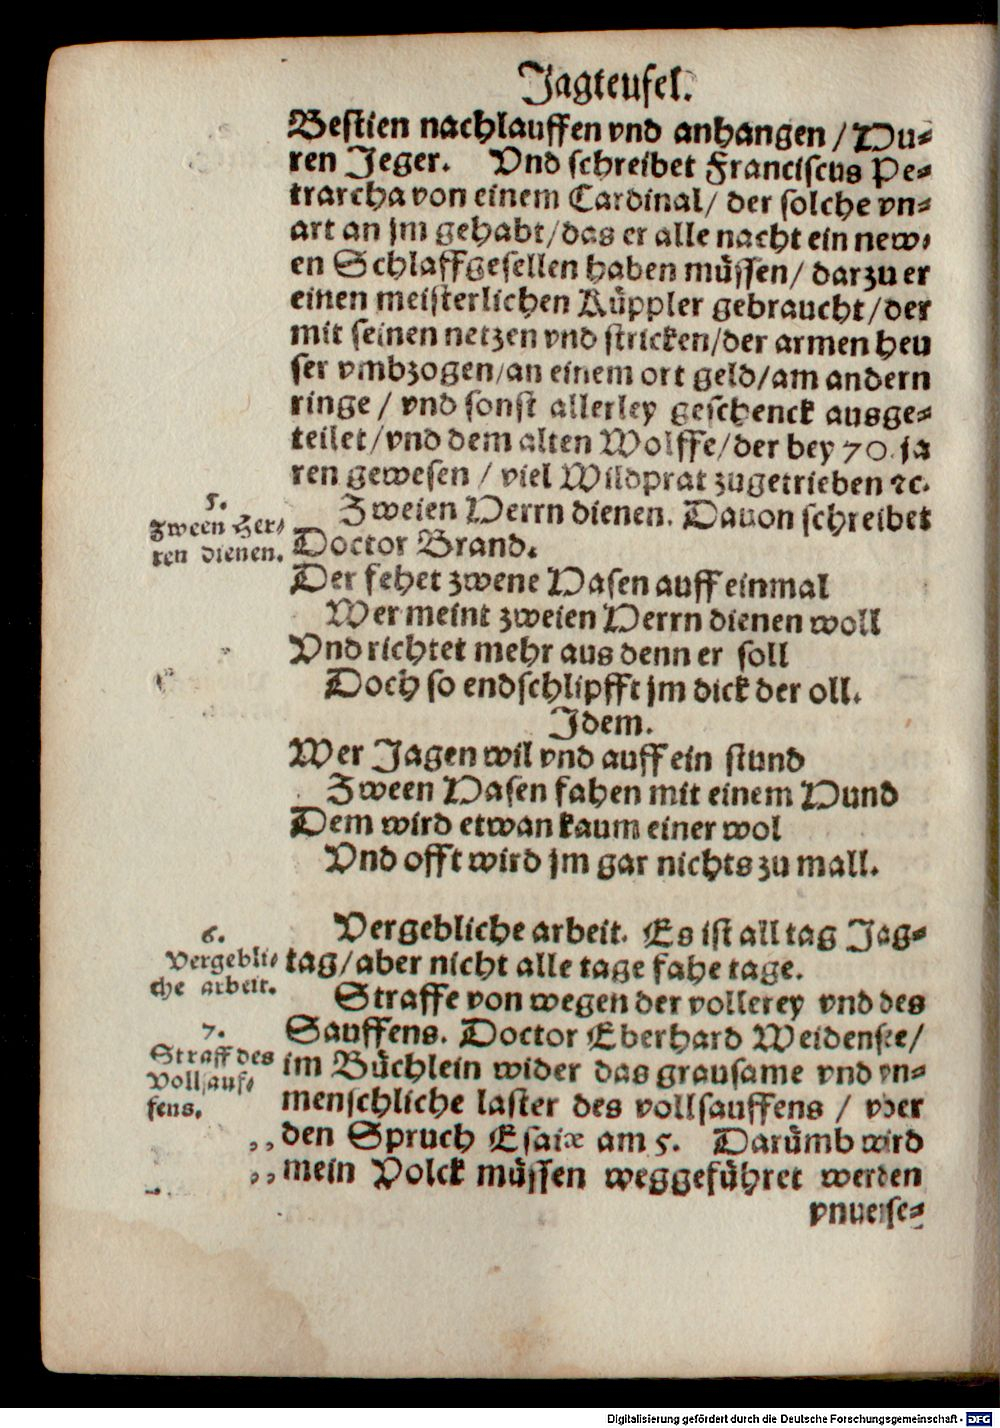 Jagteufel.
Bestien nachlauffen vnd anhangen / Hu-
ren Jeger. Vnd schreibet Franciscus Pe-
trarcha von einem Cardinal/ der solche vn-
art an jm gehabt/das er alle nacht ein new-
en Schlaffgesellen haben müssen/ darzu er
einen meisterlichen Küppler gebraucht/der
mit seinen netzen vnd stricken/der armen heu
ser vmbzogen/an einem ort geld/am andern
ringe / vnd sonst allerley geschenck ausge-
teilet/vnd dem alten Wolffe/der bey 70. ja
ren gewesen / viel Wildprat zugetrieben ꝛc.
5.
Zween Her-
ren dienen.
Zweien Herrn dienen. Dauon schreibet
Doctor Brand.
Der fehet zwene Hasen auff einmal
Wer meint zweien Herrn dienen woll
Vnd richtet mehr aus denn er soll
Doch so endschlipfft jm dick der oll.
Idem.
Wer Jagen wil vnd auff ein stund
Zween Hasen fahen mit einem Hund
Dem wird etwan kaum einer wol
Vnd offt wird jm gar nichts zu mall.
6.
Vergebli-
che arbeit.
Vergebliche arbeit. Es ist all tag Jag-
tag/aber nicht alle tage fahe tage.
7.
Straff des
Vollsauf-
fens.
Straffe von wegen der vollerey vnd des
Sauffens. Doctor Eberhard Weidensee/
im Büchlein wider das grausame vnd vn-
menschliche laster des vollsauffens / vber
„den Spruch Esaiæ am 5. Darümb wird
„mein Volck müssen weggeführet werden
vnuerse-
Digitalisierung gefördert durch die Deutsche Forschungsgemeinschaft - DFG